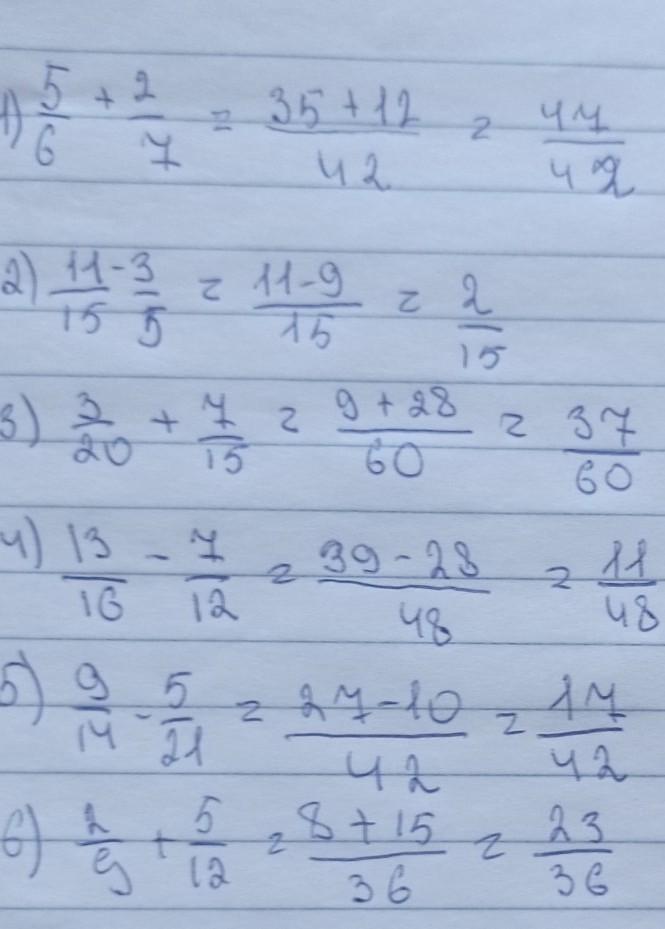 1) 5/6 + 2/7 = (35 + 12)/42 = 47/42
2) 11/15 - 3/5 = (11 - 9)/15 = 2/15
3) 3/20 + 7/15 = (9 + 28)/60 = 37/60
4) 13/16 - 7/12 = (39 - 28)/48 = 11/48
5) 9/14 - 5/21 = (27 - 10)/42 = 17/42
6) 2/9 + 5/12 = (8 + 15)/36 = 23/36